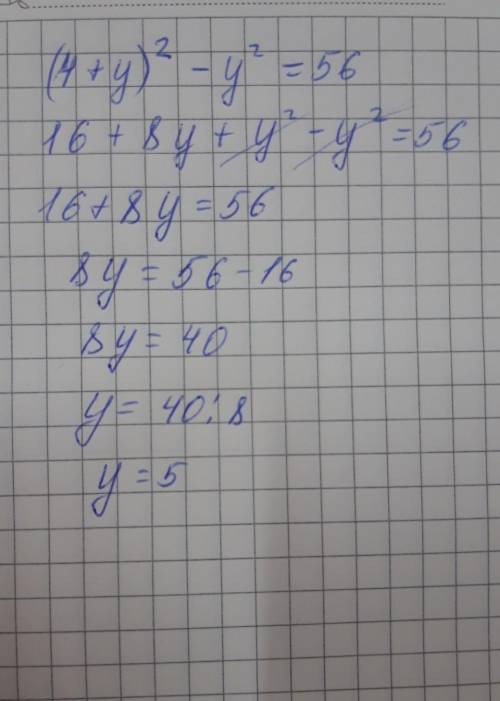 (4+y)² - y² = 56
16 + 8y + y² - y² = 56
16 + 8y = 56
8y = 56 - 16
8y = 40
y = 40 : 8
y = 5